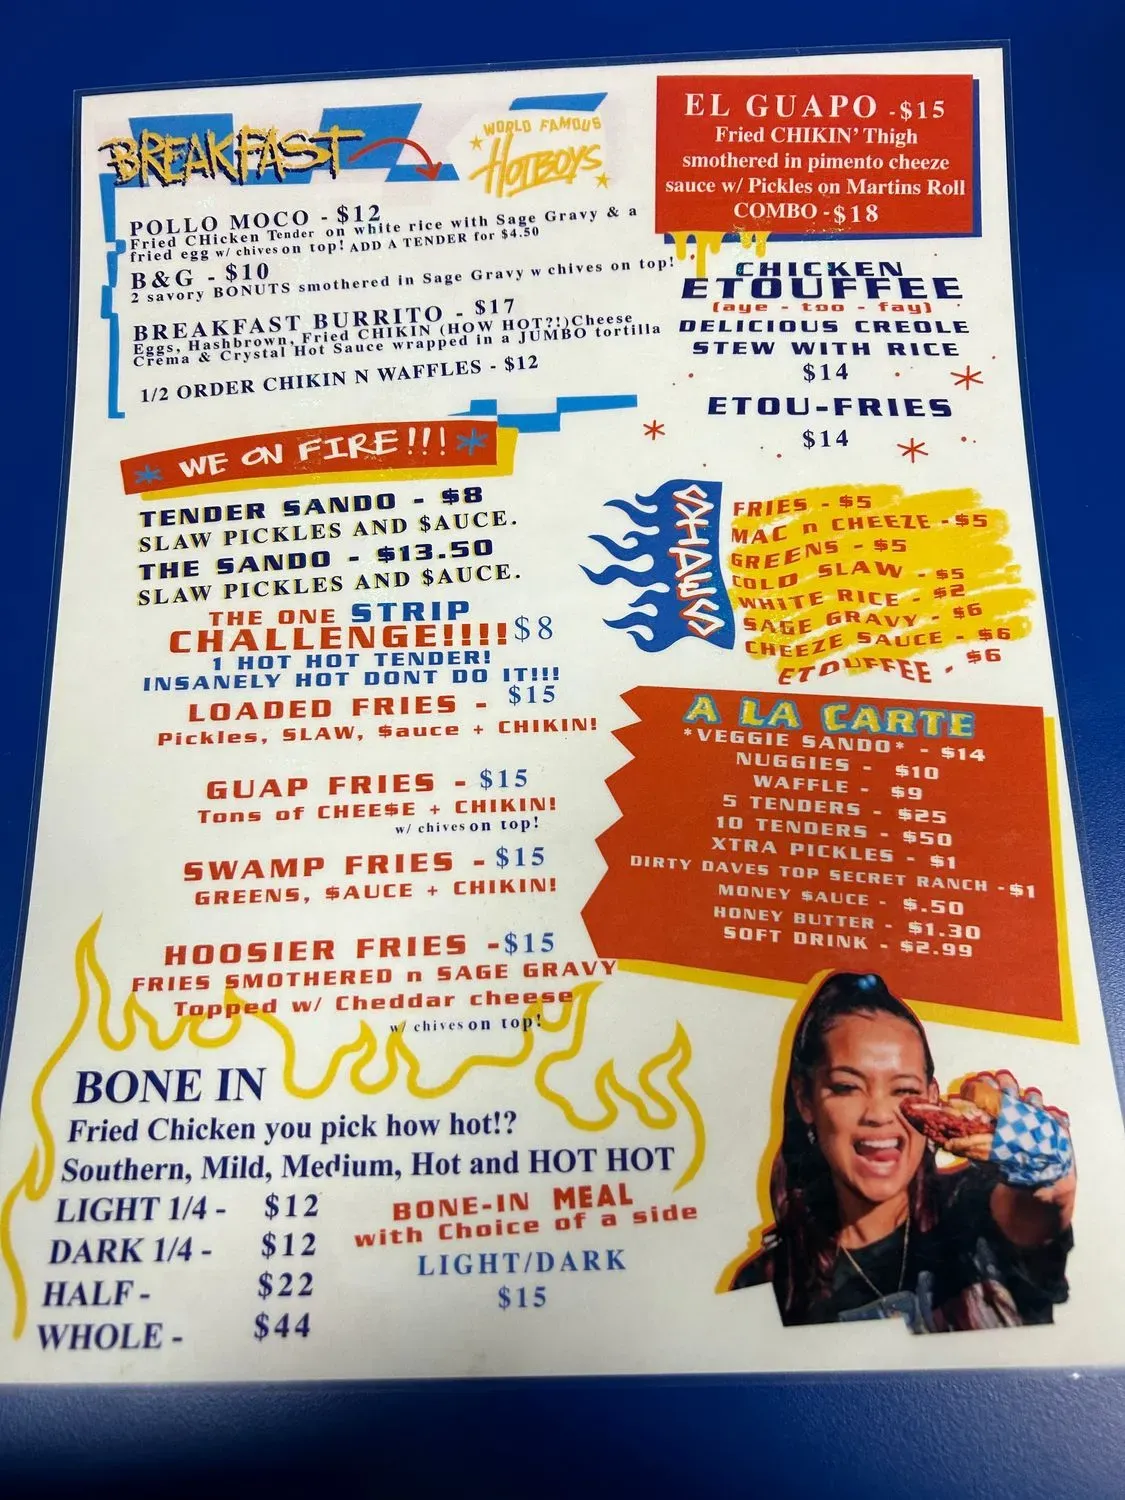 BREAKFAST
WORLD FAMOUS
HOTBOYS
POLLO MOCO - $12
Fried CHicken Tender on white rice with Sage Gravy & a
fried egg w/ chives on top! ADD A TENDER for $4.50
B&G - $10
2 savory BONUTS smothered in Sage Gravy w chives on top!
BREAKFAST BURRITO - $17
Eggs, Hashbrown, Fried CHIKIN (HOW HOT?!)Cheese
Crema & Crystal Hot Sauce wrapped in a JUMBO tortilla
1/2 ORDER CHIKIN N WAFFLES - $12
EL GUAPO -$15
Fried CHIKIN' Thigh
smothered in pimento cheeze
sauce w/ Pickles on Martins Roll
COMBO -$18
CHICKEN
ETOUFFEE
(aye - too - fay)
DELICIOUS CREOLE
STEW WITH RICE
$14
ETOU-FRIES
$14
* WE ON FIRE!!! *
TENDER SANDO - $8
SLAW PICKLES AND $AUCE.
THE SANDO - $13.50
SLAW PICKLES AND $AUCE.
THE ONE STRIP
CHALLENGE!!!! $8
1 HOT HOT TENDER!
INSANELY HOT DONT DO IT!!!
LOADED FRIES - $15
Pickles, SLAW, $auce + CHIKIN!
GUAP FRIES - $15
Tons of CHEE$E + CHIKIN!
w/ chives on top!
SWAMP FRIES - $15
GREENS, $AUCE + CHIKIN!
HOOSIER FRIES -$15
FRIES SMOTHERED n SAGE GRAVY
Topped w/ Cheddar cheese
w/ chives on top!
SIDES
FRIES - $5
MAC n CHEEZE - $5
GREENS - $5
COLD SLAW - $5
WHITE RICE - $2
SAGE GRAVY - $6
CHEEZE SAUCE - $6
ETOUFFEE - $6
A LA CARTE
*VEGGIE SANDO* - $14
NUGGIES - $10
WAFFLE - $9
5 TENDERS - $25
10 TENDERS - $50
XTRA PICKLES - $1
DIRTY DAVES TOP SECRET RANCH - $1
MONEY $AUCE - $.50
HONEY BUTTER - $1.30
SOFT DRINK - $2.99
BONE IN
Fried Chicken you pick how hot!?
Southern, Mild, Medium, Hot and HOT HOT
LIGHT 1/4 - $12
DARK 1/4 - $12
HALF - $22
WHOLE - $44
BONE-IN MEAL
with Choice of a side
LIGHT/DARK
$15